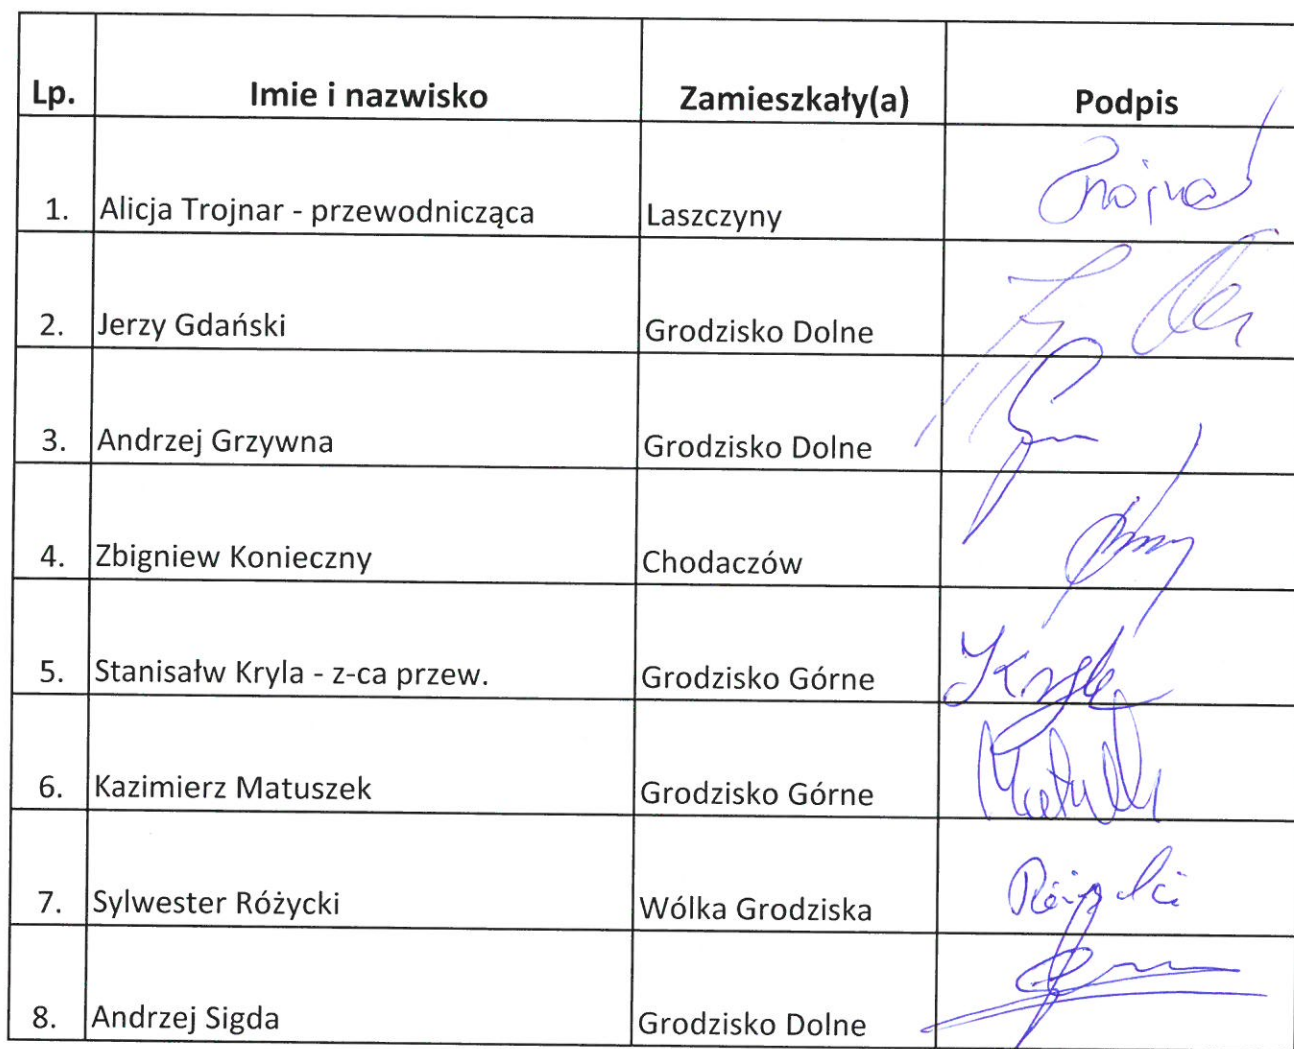 Lp. Imie i nazwisko Zamieszkały(a) Podpis
1. Alicja Trojnar - przewodnicząca Laszczyny Trojnar
2. Jerzy Gdański Grodzisko Dolne
3. Andrzej Grzywna Grodzisko Dolne
4. Zbigniew Konieczny Chodaczów
5. Stanisałw Kryla - z-ca przew. Grodzisko Górne Kryla
6. Kazimierz Matuszek Grodzisko Górne
7. Sylwester Różycki Wólka Grodziska Różycki
8. Andrzej Sigda Grodzisko Dolne